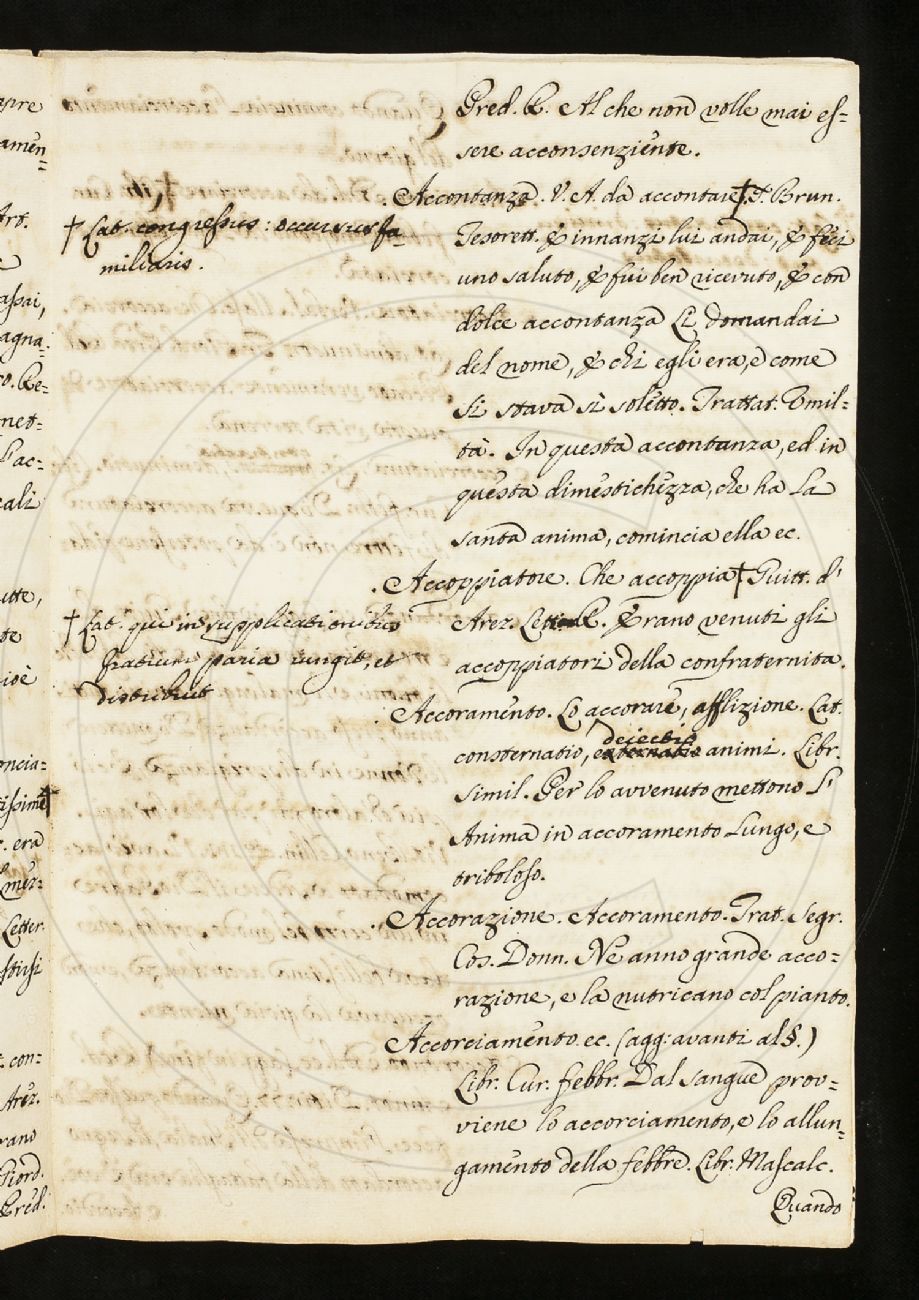 Pred. R. Al che non volle mai es=
sere acconsenziente.
Accontanza. V. A. da accontare † T. Brun.
Tesorett. E innanzi lui andai, E feci
uno saluto, E fui ben ricevuto, E con
dolce accontanza Li domandai
del nome, E chi egli era, e come
Si stava sì soletto. Trattat. Umil=
tà. In questa accontanza, ed in
questa dimestichezza, che ha la
santa anima, comincia ella ec.
Accoppiatore. Che accoppia † Guitt. d'
Arez. Lett. R. Erano venuti gli
accoppiatori della confraternita.
Accoramento. Lo accorare, afflizione. Lat.
consternatio, deiectio animi. Libr.
Simil. Per lo avvenuto mettono l'
Anima in accoramento lungo, e
triboloso.
Accorazione. Accoramento. Trat. Segr.
Cos. Donn. Ne anno grande acco=
razione, e la nutricano col pianto.
Accorciamento. ec. (agg: avanti al §.)
Libr. Cur. febbr. Dal sangue prov=
viene lo accorciamento, e lo allun=
gamento della febbre. Libr. Mascalc.
Quando
† Lat. congressus: occursus fa=
miliaris.
† Lat. qui in supplicationibus
fratrum paria iungit, et
distribuit
apre
amen=
Art.
assai,
agna=
ro. Re=
net=
l'ac=
cali
utte,
te
cioè
oncia=
tissime †
era
mer=
Letter.
stirsi
con=
Arez.
rano
Giord.
Pred.